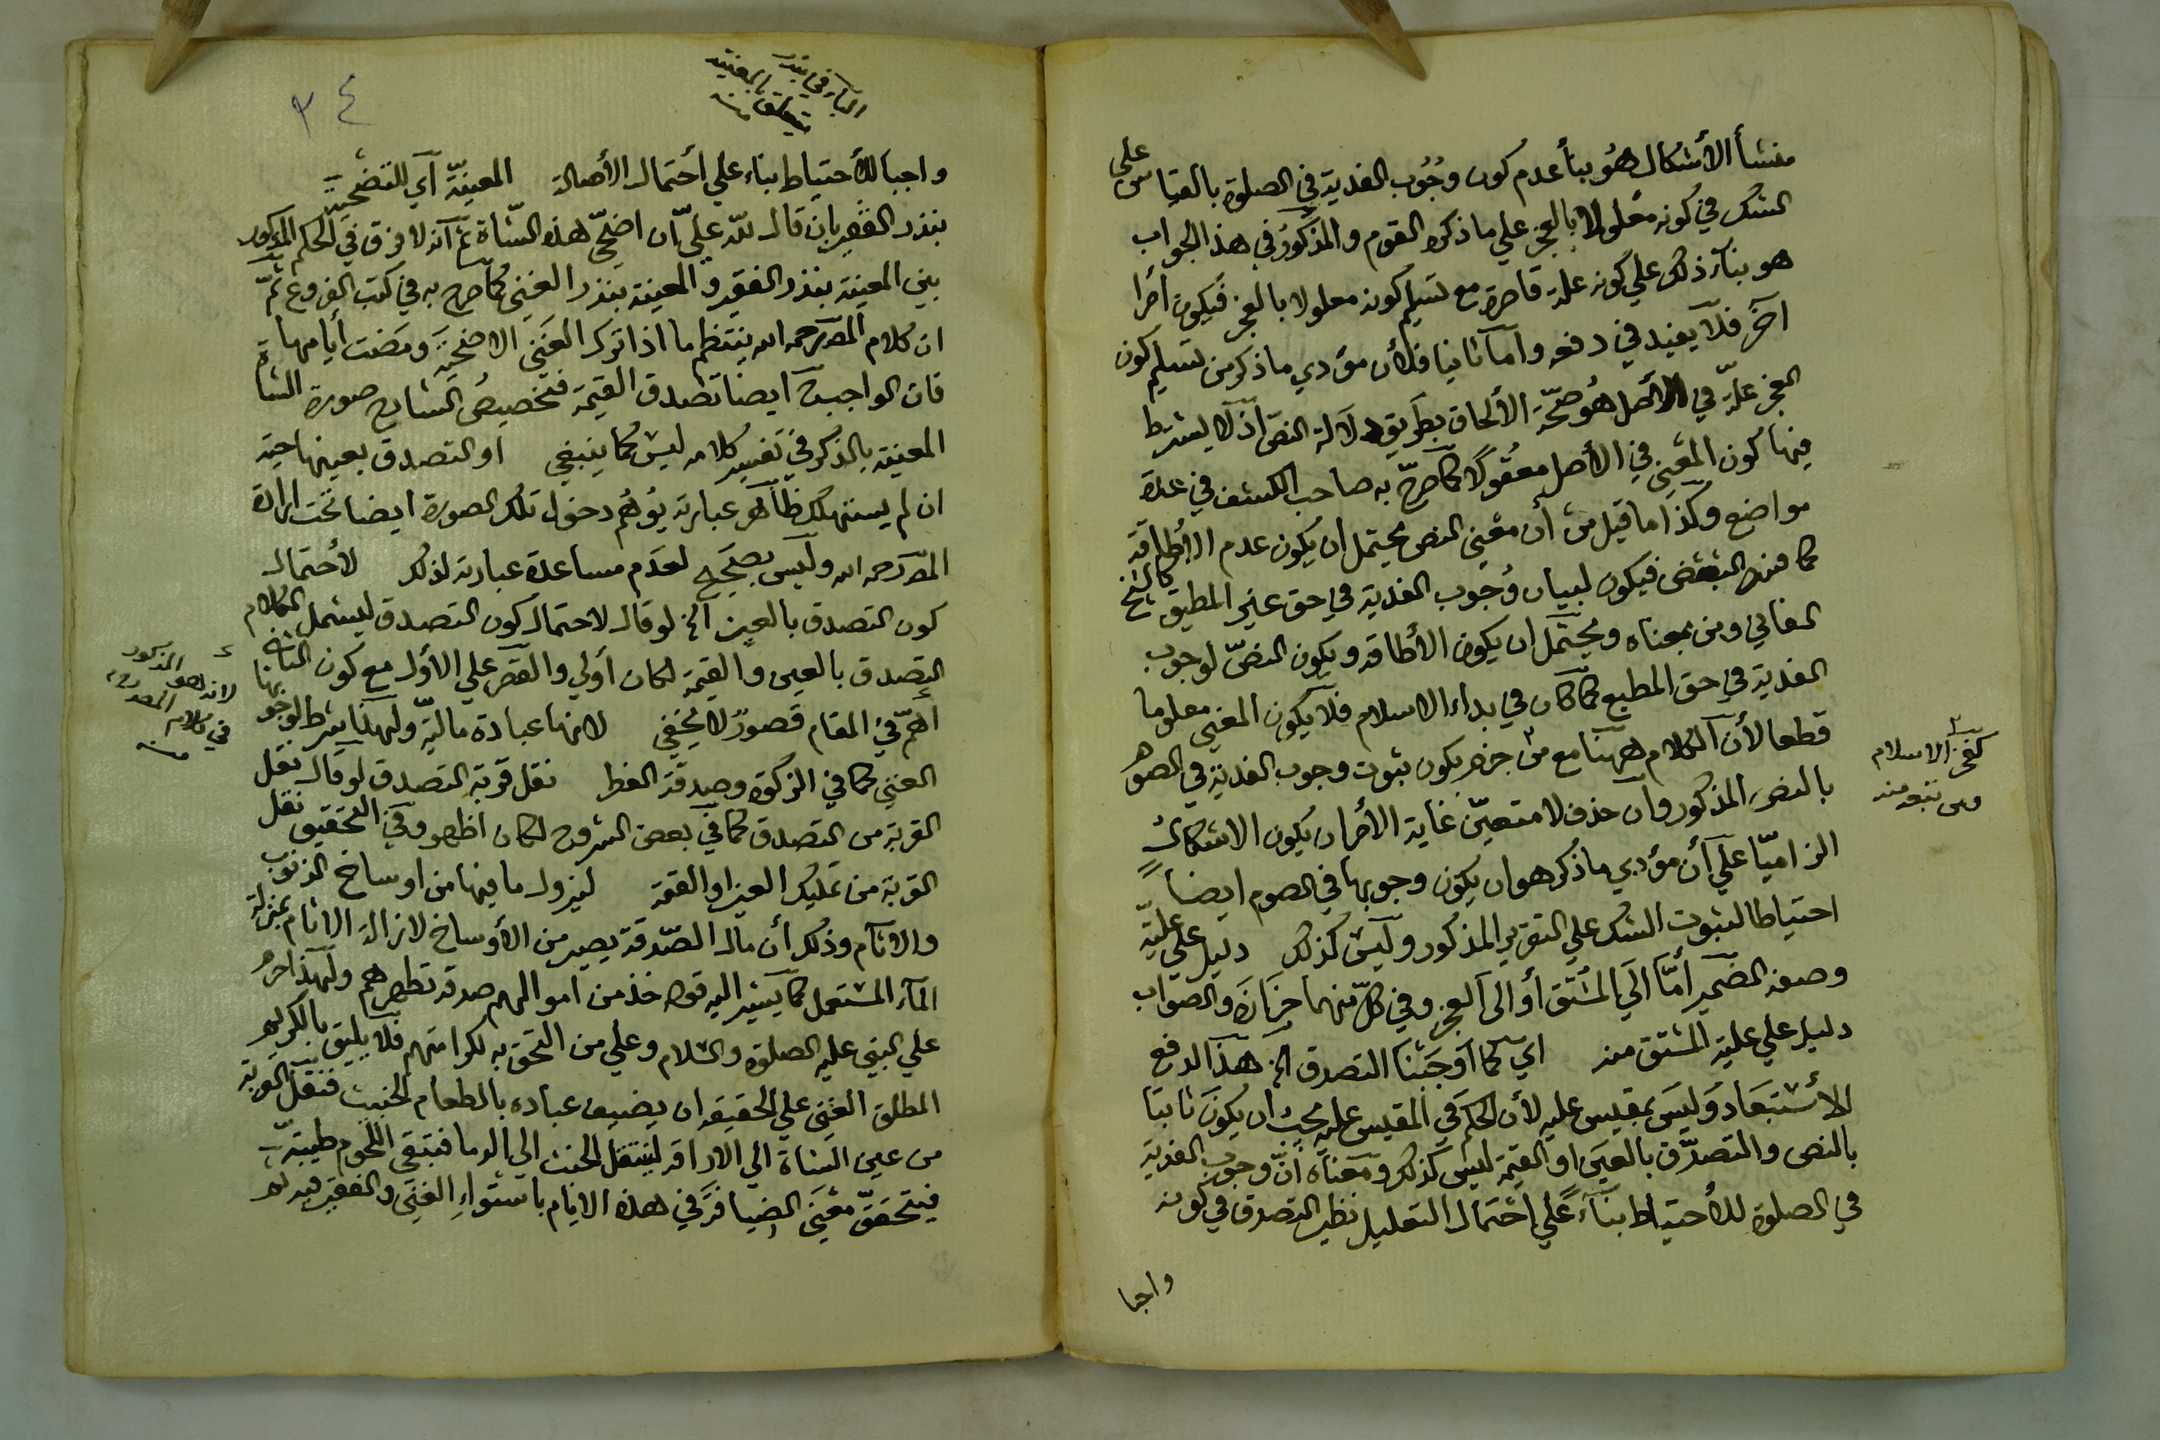 منشأ الأشكال هو بناء عدم كون وجوب الفدية في الصلوة بالقياس على
الشك في كونه معلولا بالعجز علي ما ذكره القوم والمذكور في هذا الجواب
هو بناء ذلك علي كونه علة قاصرة مع تسليم كونه معلولا بالعجز فيكون أمرا
آخر فلا يفيد في دفعه وأما ثانيا فلأن مؤدي ما ذكر من تسليم كون
العجز علة في الأصل هو صحة الألحاق بطريق دلالة النص اذ لا يشترط
فيها كون المعني في الأصل معقولا كما صرح به صاحب الكشف في عدة
مواضع وكذا ما قيل من أن معني النص يحتمل ان يكون عدم الأطاقة
كما فسره البعض فيكون لبيان وجوب الفدية في حق غير المطيق كالشيخ
الفاني ومن بمعناه ويحتمل ان يكون الأطاقة ويكون النص لوجوب
الفدية في حق المطيع كما كان في بداء الاسلام فلا يكون المعني معلوما
قطعا لأن الكلام ههنا مع من جزم بكون ثبوت وجوب الفدية في الصوم
بالنص المذكور وأن حذف لا متعين غاية الأمر ان يكون الاشكال
الزاميا علي أن مؤدي ما ذكر هو ان يكون وجوبها في الصوم ايضا
احتياطا لثبوت الشك علي التقرير المذكور وليس كذلك دليل علي علية
وصفه الضمير أما الي المشتق أو الى العجز وفي كل منهما حزازة والصواب
دليل علي علية المشتق منه اي كما أوجبنا التصدق الخ هذا لدفع
الأستبعاد وليس بمقيس عليه لأن الحكم في المقيس عليه يجب ان يكون ثابتا
بالنص والتصدق بالعين او القيمة ليس كذلك ومعناه أن وجوب الفدية
في الصلوة للأحتياط بناء علي احتمال التعليل نظير التصدق في كونه
واجبا
كفخر الاسلام
ومن تبعه منه
٣٤
الباء في بنذر المعنية
واجبا للأحتياط بناء علي أحتمال الأصالة المعينة أي للتضحية
بنذر الفقير بان قال لله علي ان اضحي هذه الشاة ثم أنه لا فرق في الحكم المذكور
بين المعينة بنذر الفقير والمعينة بنذر الغني كما صرح به في كتب الفروع ثم
ان كلام المصر رحمه الله ينتظم ما اذا ترك الغني الاضحية ومضت أيامها
فان الواجب ايضا تصدق القيمة فتخصيص الشارح صورة الشاة
المعينة بالذكر في تفسير كلامه ليس كما ينبغي او التصدق بعينها حية
ان لم يستهلك ظاهر عبارته يوهم دخول تلك الصورة ايضا تحت ارادة
المصر رحمه الله وليس بصحيح لعدم مساعدة عبارته لذلك لأحتمال
كون التصدق بالعين الخ لو قال لاحتمال كون التصدق ليشمل الكلام
التصدق بالعين والقيمة لكان أولي والقصر علي الأول مع كون الثاني
أهم في المقام قصور لا يخفي لانها عبادة مالية ولهذا يشترط لوجوبها
الغني كما في الزكوة وصدقة الفطر نقل قربة التصدق لو قال نقل
القربة من التصدق كما في بعض الشروح لكان اظهر وفي التحقيق نقل
القربة من تمليك العين او القيمة ليزول ما فيها من اوساخ الذنوب
والاثام وذلك أن مال الصدقة يصير من الأوساخ لازالة الاثام بمنزلة
الماء المستعمل كما يشير اليه قوله خذ من اموالهم صدقة تطهرهم ولهذا حرم
علي النبي عليه الصلوة والسلام وعلي من التحق به لكرامتهم فلا يليق بالكريم
المطلق الغني علي الحقيقة ان يضيف عباده بالطعام الخبيث فنقل القربة
من عين الشاة الي الاراقة لينتقل الخبث الي الدما فتبقي اللحوم طيبة
فيتحقق معني الضيافة في هذه الايام باستواء الغني والفقير فيه
لانه هو المذكور
في كلام المصر رحمه
منه